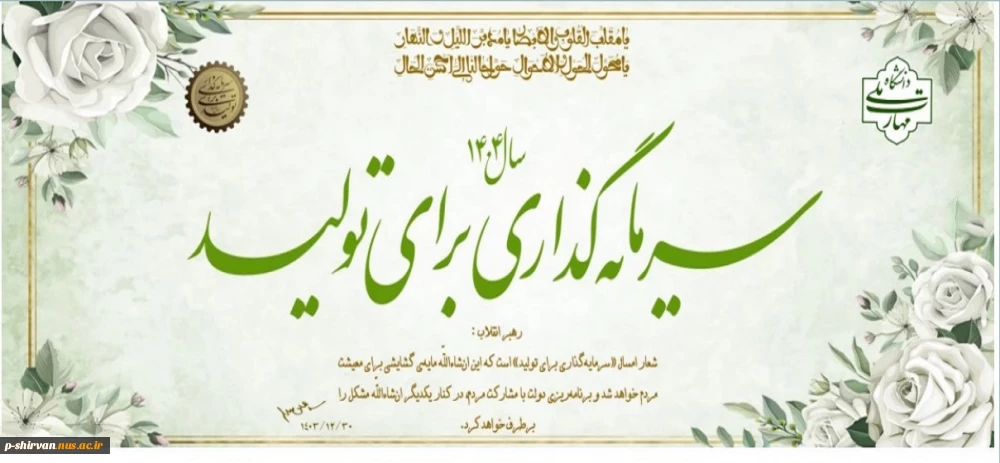 یا مقلب القلوب و الابصار یا مدبر اللیل و النهار
یا محول الحول و الاحوال حول حالنا الی احسن الحال
دانشگاه
ملی
مهارت
سرمایه‌گذاری
برای
تولید
سال ۱۴۰۴
سرمایه‌گذاری برای تولید
رهبر انقلاب :
شعار امسال «سرمایه‌گذاری برای تولید» است که این ان‌شاءاللّه مایه‌ی گشایشی برای معیشت
مردم خواهد شد و برنامه‌ریزی دولت با مشارکت مردم در کنار یکدیگر ان‌شاءاللّه مشکل را
برطرف خواهد کرد.
۱۴۰۳/۱۲/۳۰
p-shirvan.nus.ac.ir